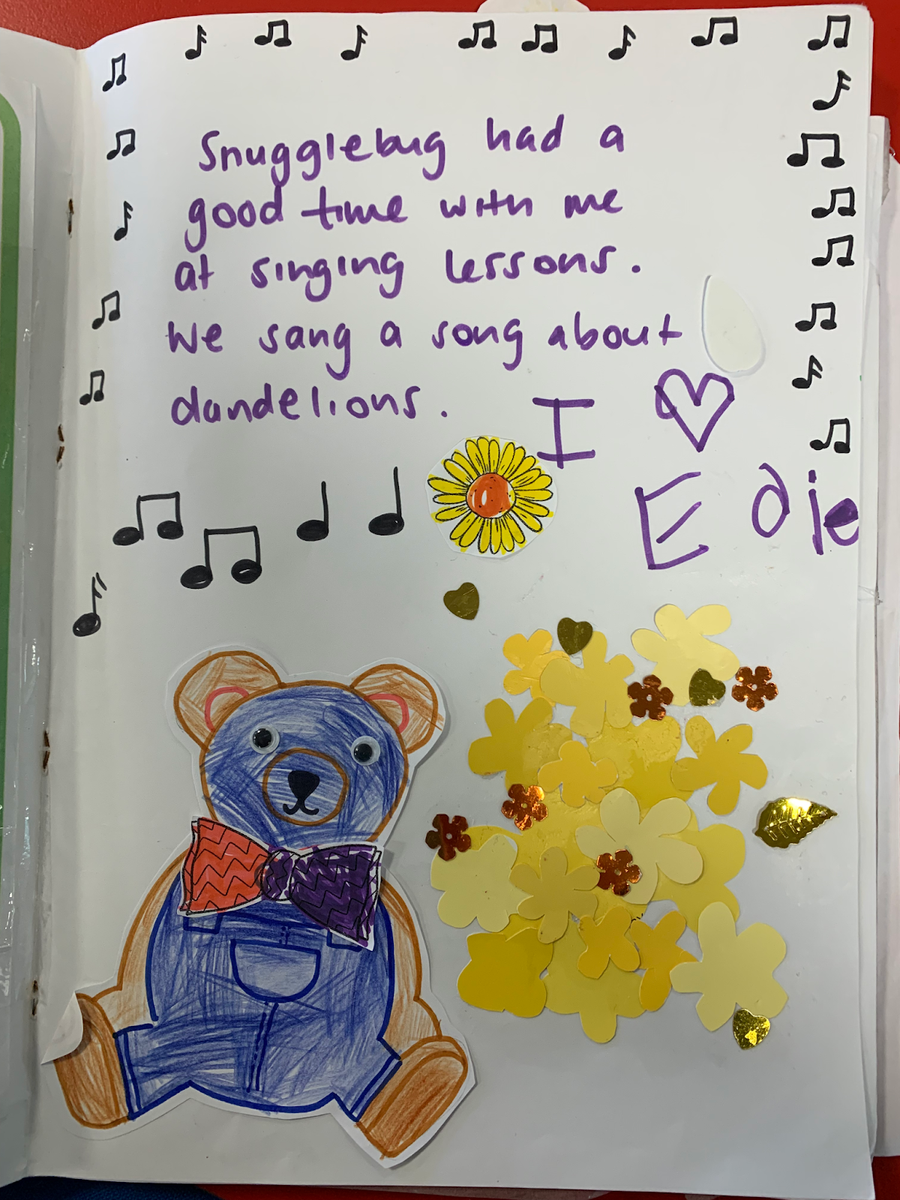 Snugglebug had a
good time with me
at singing lessons.
We sang a song about
dandelions.
I ♡
Edie